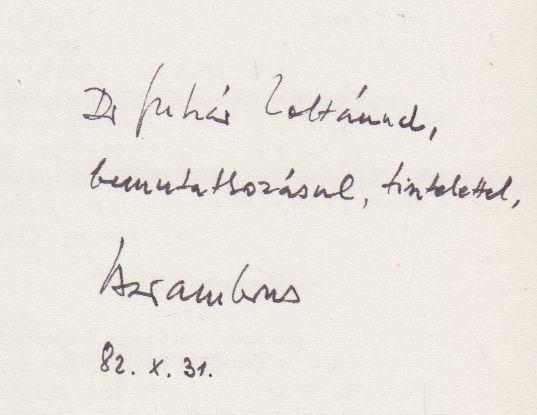 Dr Juhár Zoltánnak,
bemutatkozásul, tisztelettel,
82. X. 31.